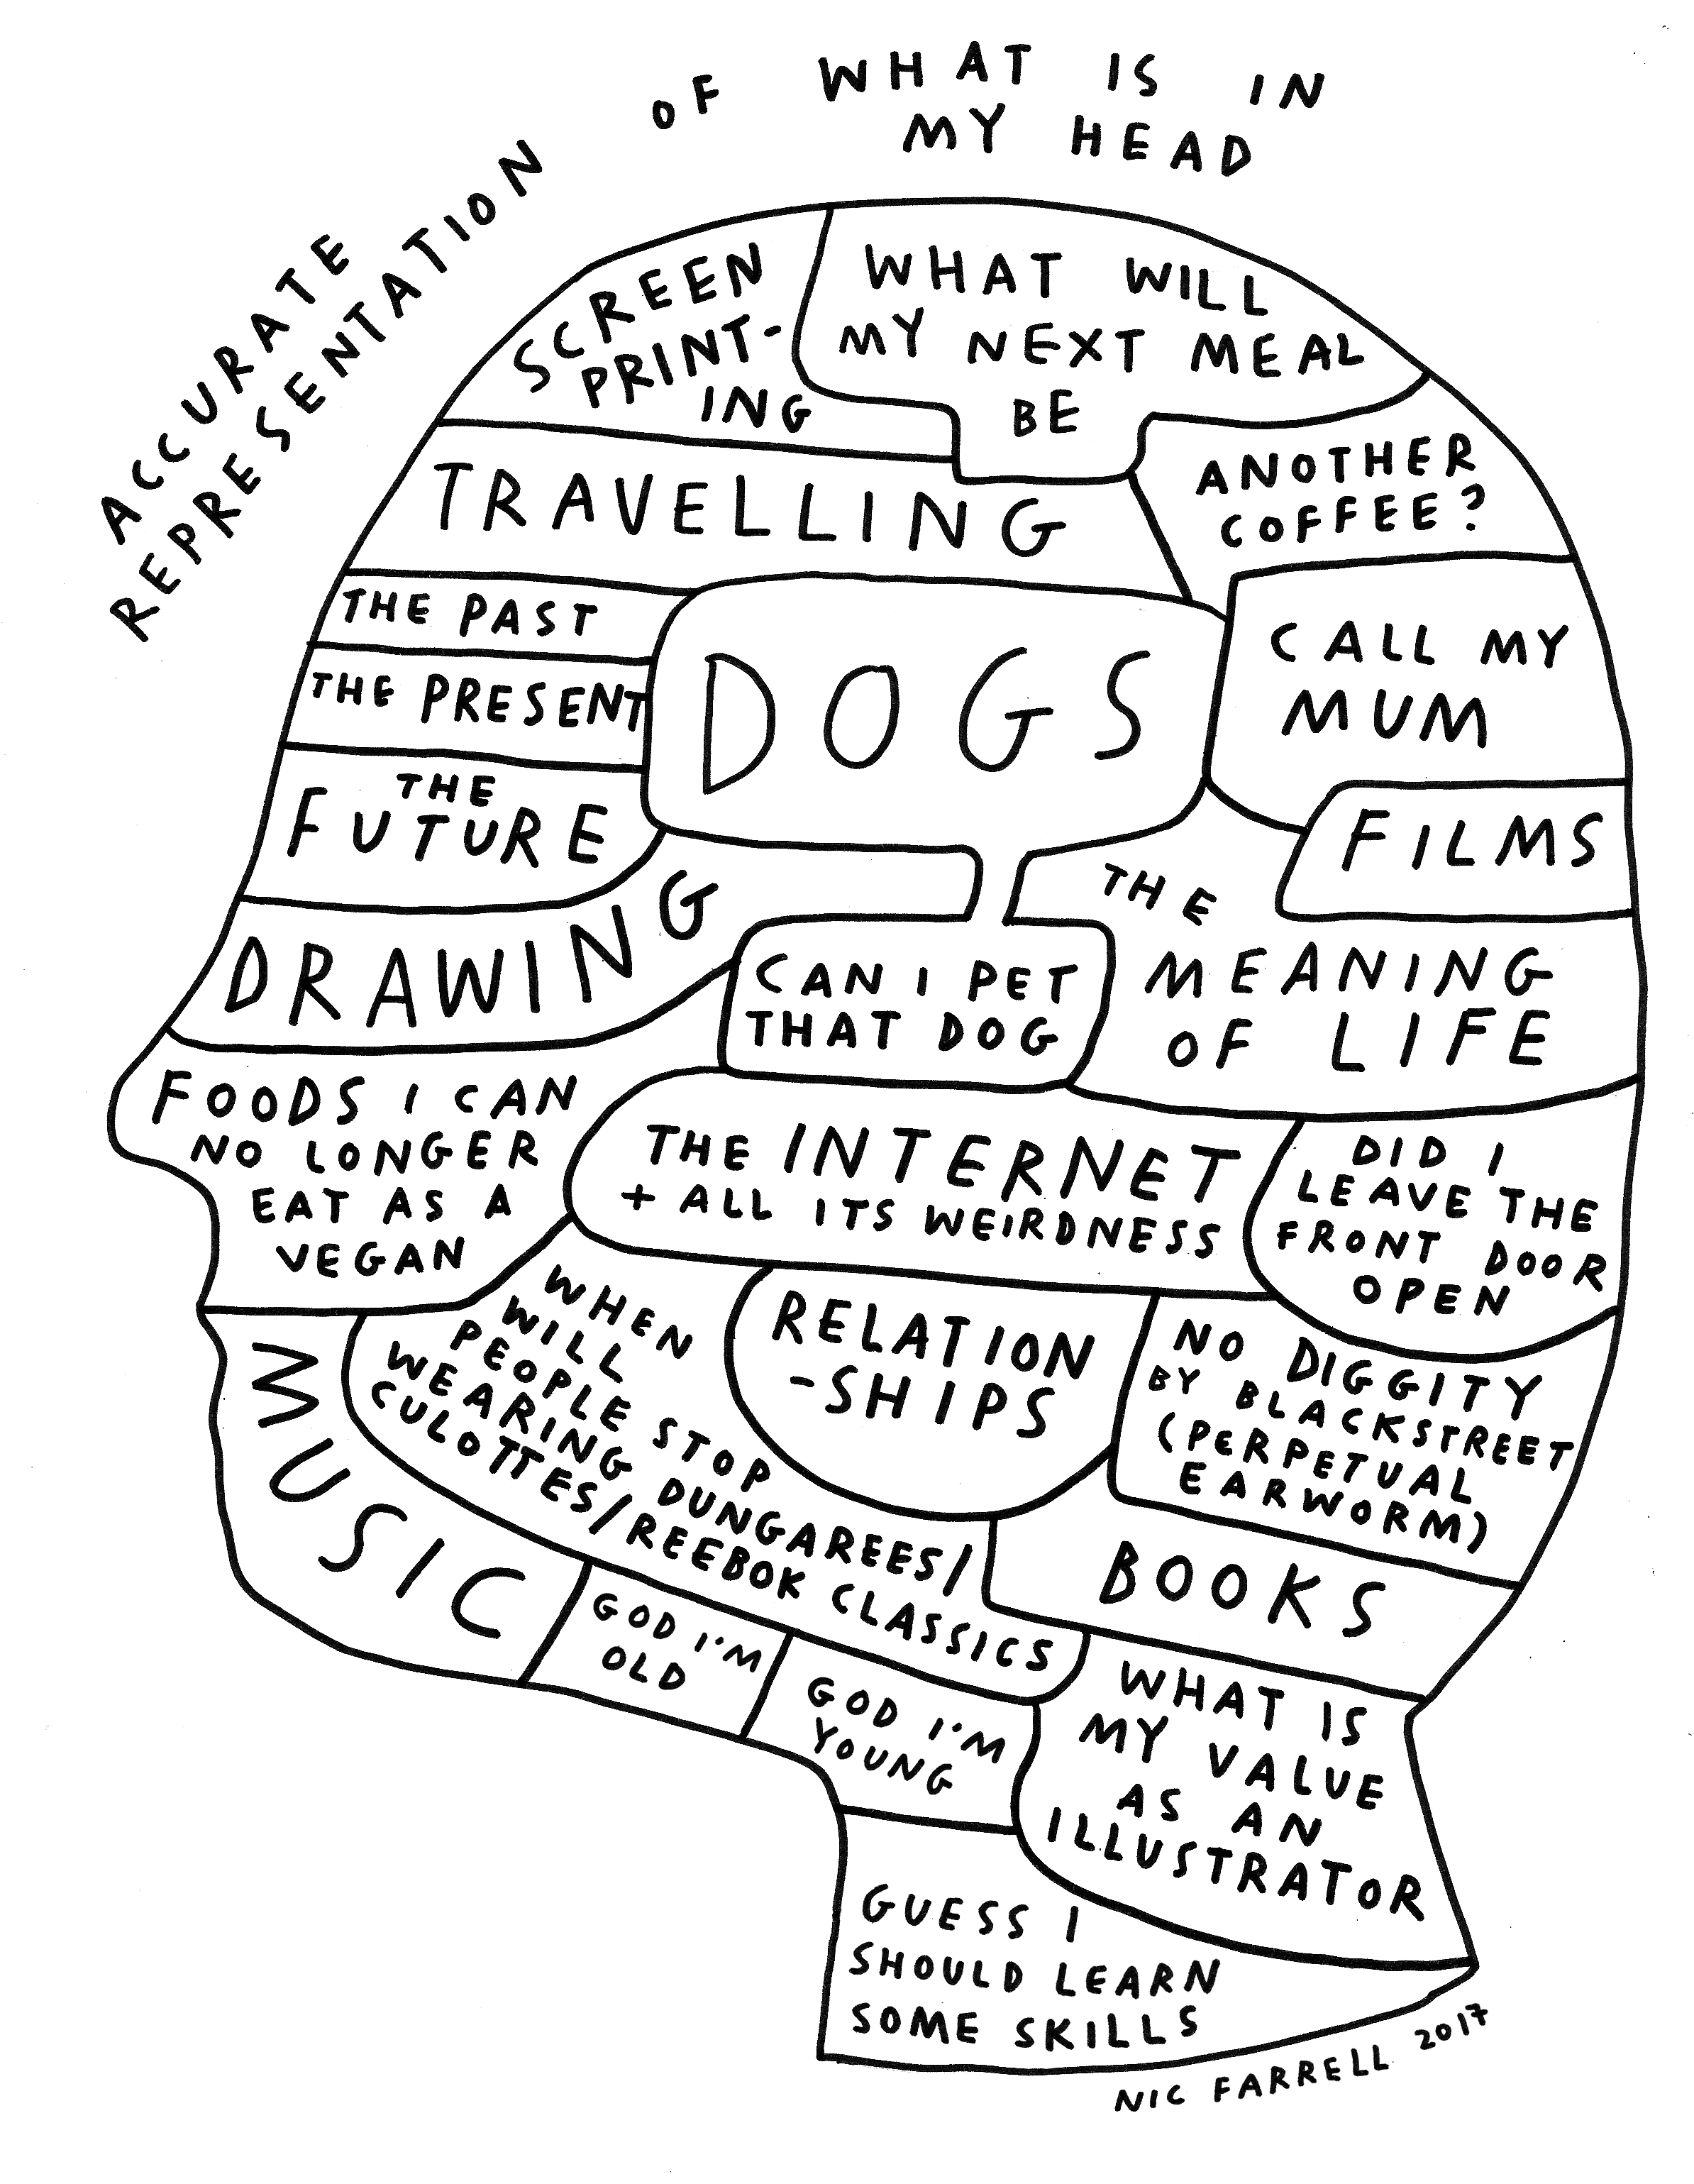 ACCURATE
REPRESENTATION OF WHAT IS IN
MY HEAD
SCREEN
PRINT-
ING
WHAT WILL
MY NEXT MEAL
BE
TRAVELLING
ANOTHER
COFFEE?
THE PAST
THE PRESENT
THE
FUTURE
DOGS
CALL MY
MUM
FILMS
DRAWING
CAN I PET
THAT DOG
THE
MEANING
OF LIFE
FOODS I CAN
NO LONGER
EAT AS A
VEGAN
THE INTERNET
+ ALL ITS WEIRDNESS
DID I
LEAVE THE
FRONT DOOR
OPEN
MUSIC
WHEN
WILL
PEOPLE STOP
WEARING DUNGAREES/
CULOTTES/REEBOK CLASSICS
RELATION
-SHIPS
NO DIGGITY
BY BLACKSTREET
(PERPETUAL
EARWORM)
BOOKS
GOD I'M
OLD
GOD I'M
YOUNG
WHAT IS
MY VALUE
AS AN
ILLUSTRATOR
GUESS I
SHOULD LEARN
SOME SKILLS
NIC FARRELL 2017